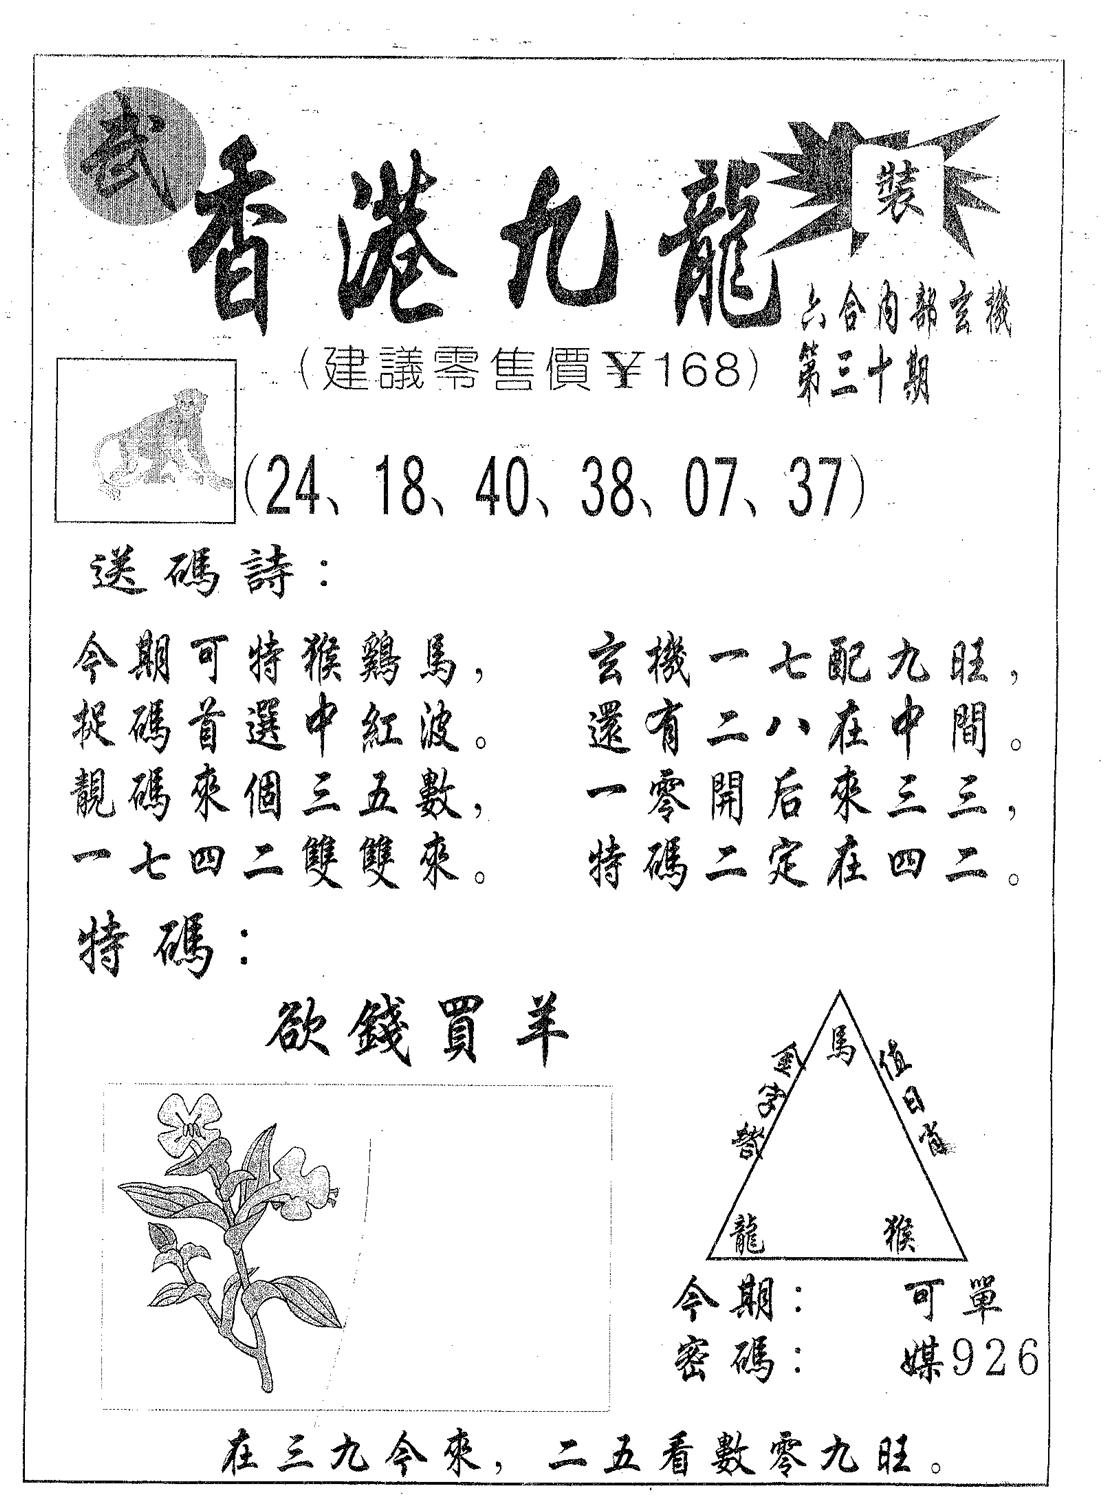 武
香港九龍
裝
六合內部玄機
第三十期
(建議零售價￥168)
(24、18、40、38、07、37)
送碼詩：
今期可特猴鷄馬，
捉碼首選中紅波。
靚碼來個三五數，
一七四二雙雙來。
玄機一七配九旺，
還有二八在中間。
一零開后來三三，
特碼二定在四二。
特碼：
欲錢買羊
馬
金字塔
值日肖
龍
猴
今期： 可單
密碼： 媒926
在三九今來，二五看數零九旺。